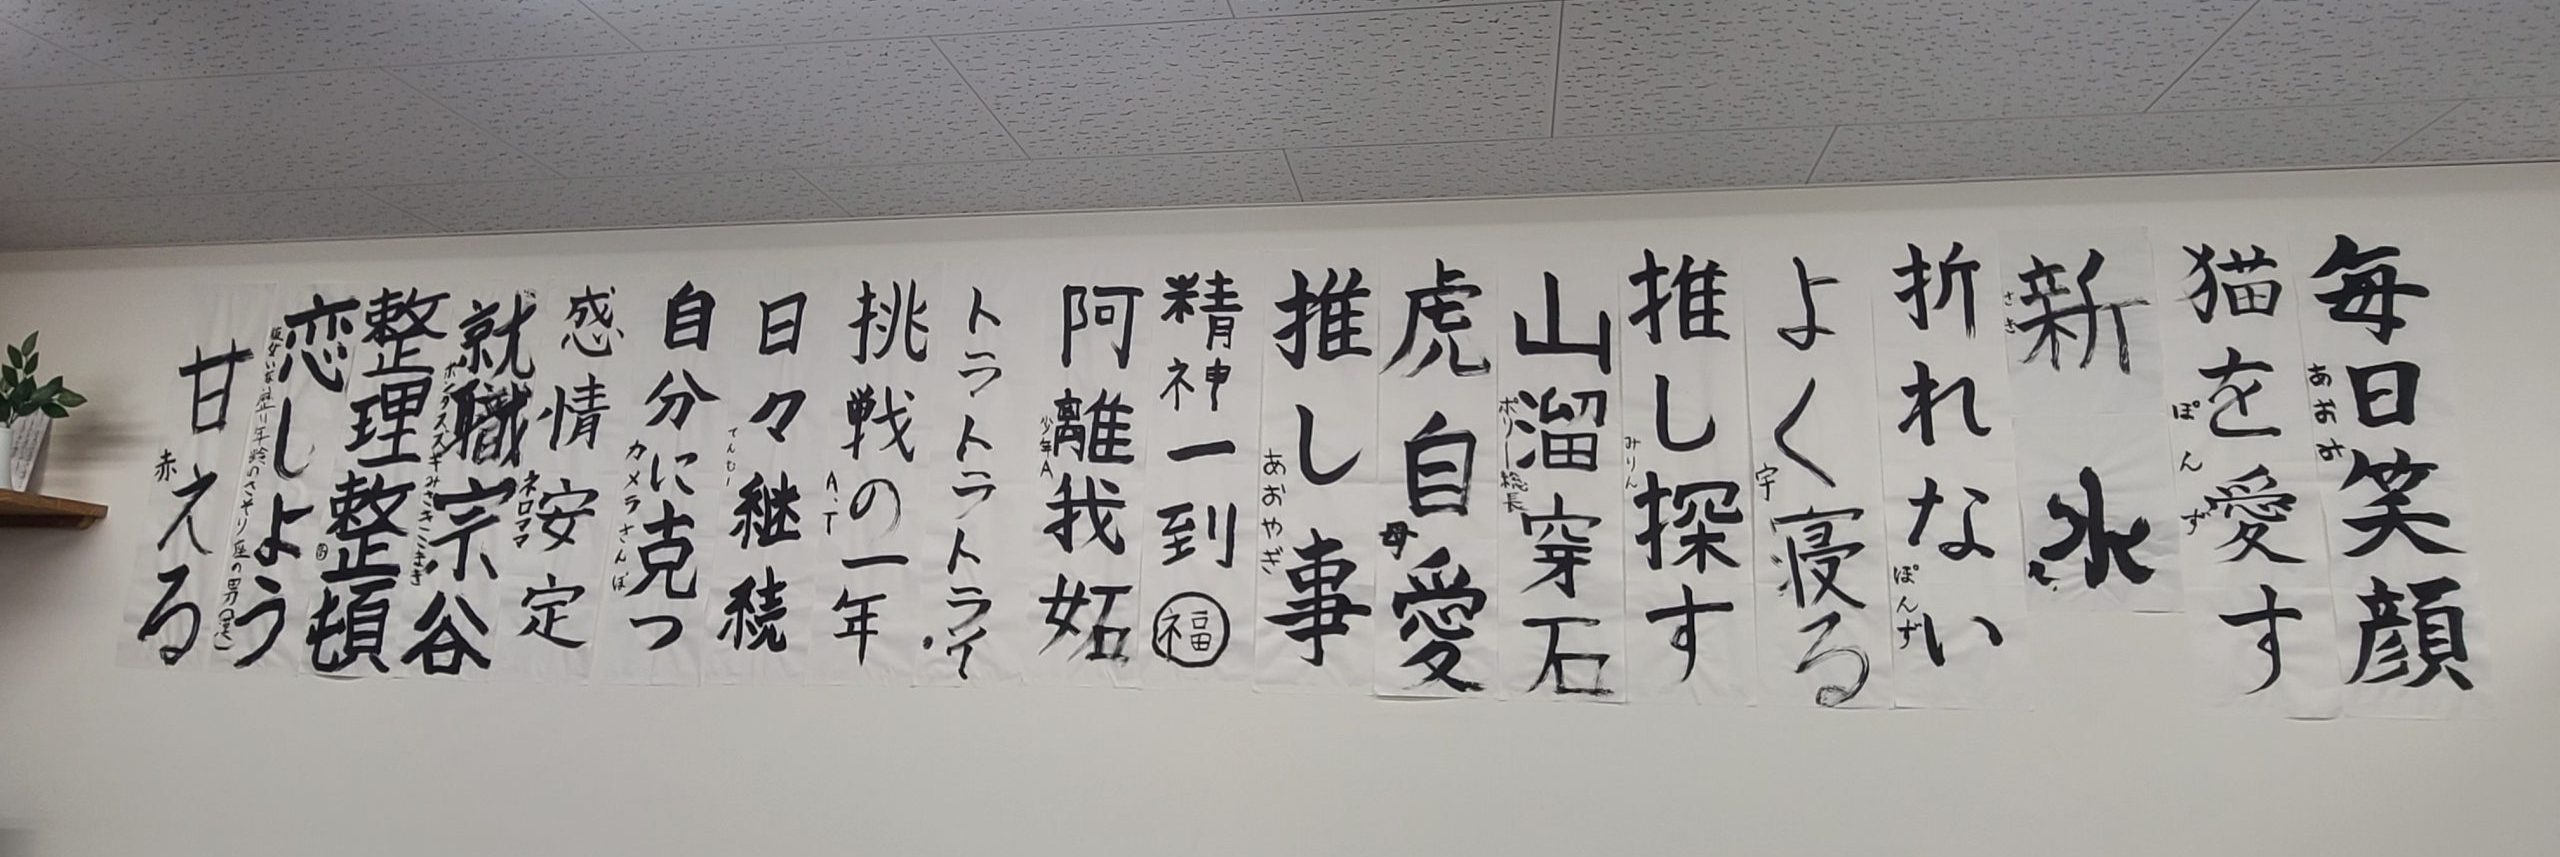 毎日笑顔
あおみ
猫を愛す
ぽんず
新
さき
氷
折れない
ぽんず
よく寝る
宇
推し探す
みりん
山溜穿石
ポリー総長
虎自愛
母
推し事
あおやぎ
精神一到
福
阿離我妬
少年A
トラトラトライ
挑戦の一年
A.T
日々継続
てんむー
自分に克つ
カメラさんぽ
感情安定
ネロママ
就職宗谷
みききこまき
整理整頓
恋しよう
彼女いない歴り年齢のさそり座の男
甘える
赤